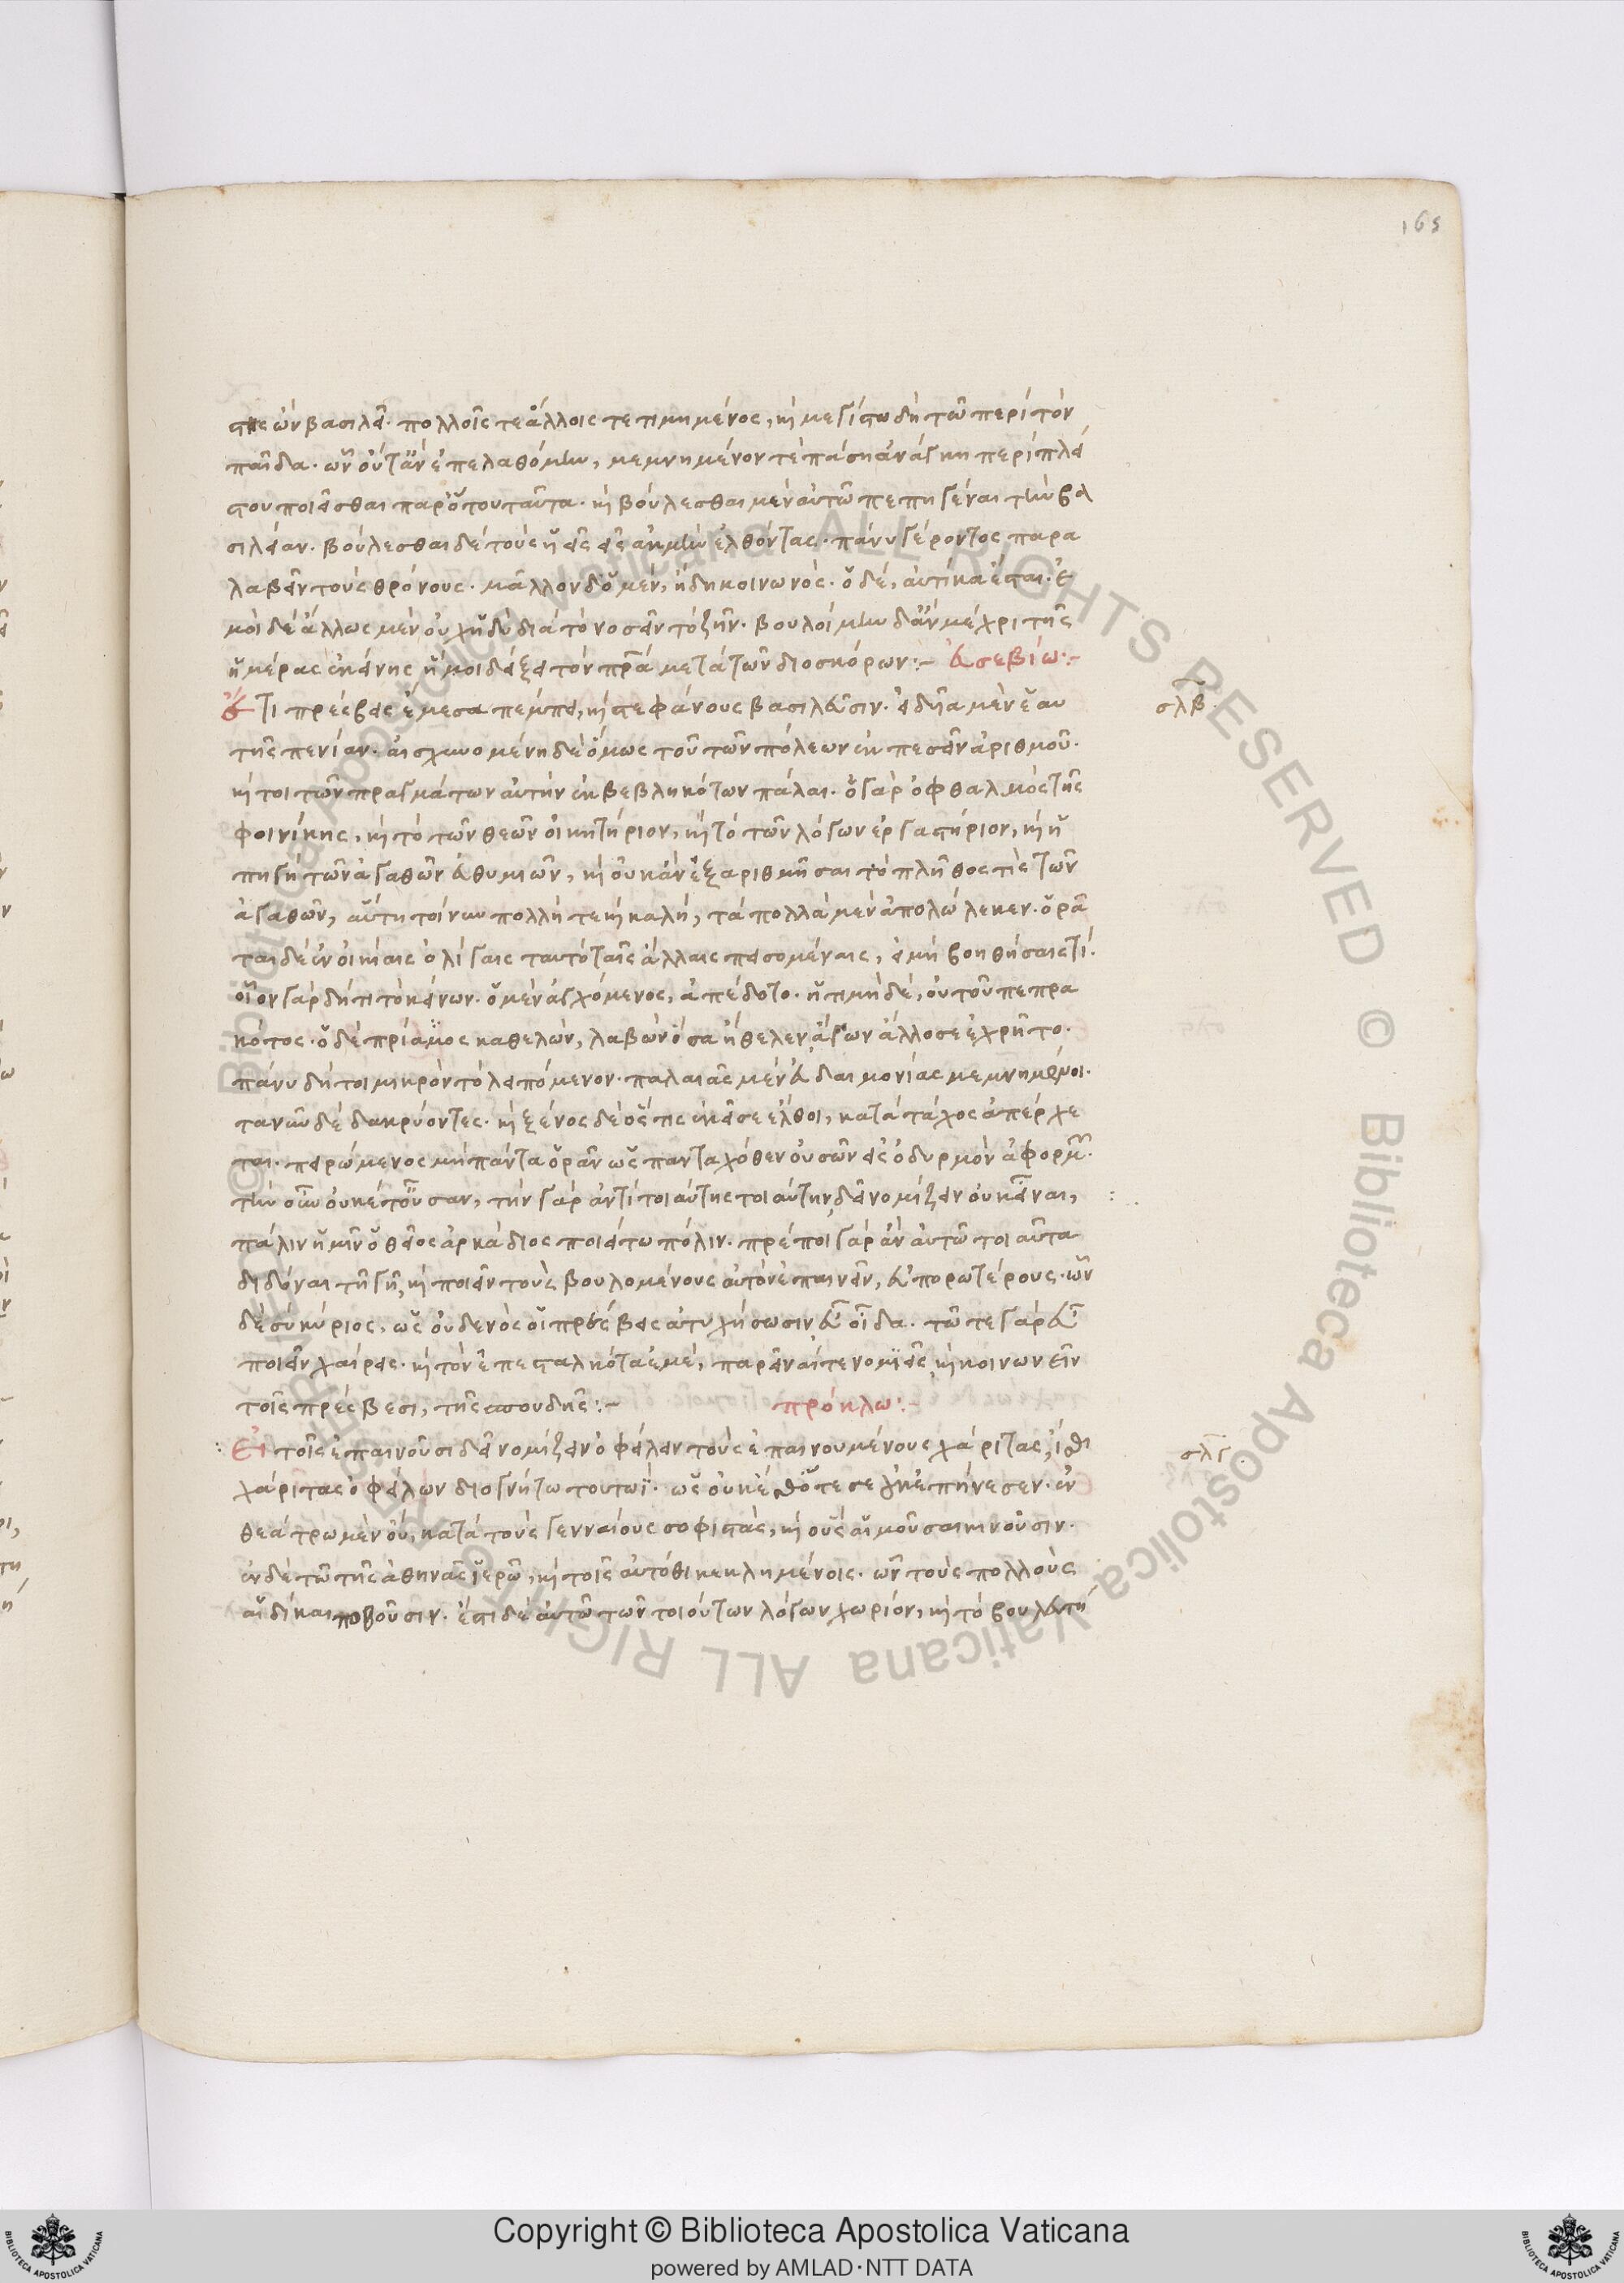 165
στις ὢν βασιλεῖ. πολλοῖς τε ἄλλοις τετιμημένος, καὶ μεγίστω δὴ τῶ περὶ τὸν
παῖδα. ὧν οὔτ' ἂν ἐπελαθόμην, μεμνημένον τὲ πᾶσα ἀνάγκη περὶ πλεί
στου ποιεῖσθαι παρ' ὅτου ταῦτα. καὶ βούλεσθαι μὲν αὐτῶ πεπηγέναι τὴν βα
σιλείαν. βούλεσθαι δὲ τοὺς υἱεῖς εἰς ἀκμὴν ἐλθόντας. πάνυ γέροντος παρα
λαβεῖν τοὺς θρόνους. μᾶλλον δ' ὁ μὲν, ἤδη κοινωνός. ὁ δὲ, αὐτίκα ἔσται. ἐ
μοὶ δὲ ἄλλως μὲν οὐχ ἡδὺ διὰ τὸ νοσεῖν τὸ ζῆν. βουλοίμην δ' ἂν μέχρι τῆς
ἡμέρας ἐκείνης ἥ μοι δείξει τὸν πρα μετὰ τῶν διοσκόρων:- εὐσεβίω:-
σλβ
Ἔτι πρέσβεις ἔμεσα πέμπει, καὶ στεφάνους βασιλεῦσιν. εἰδυῖα μὲν ἑαυ
τῆς πενίαν. αἰσχυνομένη δὲ ὅμως τοῦ τῶν πόλεων ἐκπεσεῖν ἀριθμοῦ.
καίτοι τῶν πραγμάτων αὐτὴν ἐκβεβληκότων πάλαι. ὁ γὰρ ὀφθαλμὸς τῆς
φοινίκης, καὶ τὸ τῶν θεῶν οἰκητήριον, καὶ τὸ τῶν λόγων ἐργαστήριον, καὶ ἡ
πηγὴ τῶν ἀγαθῶν εὐθυμιῶν, καὶ οὐκ ἂν ἐξαριθμῆσαι τὸ πλῆθος τὶς τῶν
ἀγαθῶν, αὕτη τοίνυν πολλή τε καὶ καλή, τὰ πολλὰ μὲν ἀπολώλεκεν. ὁρᾶ
ται δὲ ἐν οἰκίαις ὀλίγαις ταυτὸ ταῖς ἄλλαις πεισομέναις, εἰ μὴ βοηθήσαις τί.
οἷον γὰρ δή τι τὸ κείνων. ὁ μὲν ἀγχόμενος, ἀπέδοτο. ἡ τιμὴ δὲ, οὐ τοῦ πεπρα
κότος. ὁ δὲ πριάμενος καθελὼν, λαβὼν ὅσα ἤθελεν ἄγων ἄλλοσε ἐχρῆτο.
πάνυ δή τοι μικρὸν τὸ λειπόμενον. παλαιᾶς μὲν εὐδαιμονίας μεμνημένοι.
τανῦν δὲ δακρύοντες. καὶ ξένος δὲ ὅς τις ἐκεῖσε ἔλθοι, κατὰ τάχος ἀπέρχε
ται. πειρώμενος μὴ πάντα ὁρᾶν ὡς πανταχόθεν οὐσῶν εἰς ὀδυρμὸν ἀφορμ.
τὴν οὖν οὐκέτ' οὖσαν, τὴν γὰρ ἀντὶ τοιαύτης τοιαύτην δεῖ νομίζειν οὐκ εἶναι,
πάλιν ἡμῖν ὁ θεῖος ἀρκάδιος ποιείτω πόλιν. πρέποι γὰρ ἂν αὐτῶ τοιαῦτα
διδόναι τῆ γῆ, καὶ ποιεῖν τοὺς βουλομένους αὐτὸν ἐπαινεῖν, εὐπορωτέρους. ὧν
δὲ σὺ κύριος, ὡς οὐδενὸς οἱ πρέσβεις ἀτυχήσωσιν εὖ οἶδα. τῶ τε γὰρ εὖ
ποιεῖν χαίρεις. καὶ τὸν ἐπεσταλκότα ἐμὲ, παρεῖναί τε νομιεῖς, καὶ κοινωνεῖν
τοῖς πρέσβεσι, τῆς σπουδῆς:- πρόκλω:-
σλγ
Εἰ τοῖς ἐπαινοῦσι δεῖ νομίζειν ὀφείλειν τοὺς ἐπαινουμένους χάριτας, ἴσθι
χάριτας ὀφείλων διογνήτω τουτωί. ὡς οὐκ ἔσθ' ὅτε σε οὐκ ἐπήνεσεν. ἐν
θεάτρω μὲν οὐ, κατὰ τοὺς γενναίους σοφιστὰς, καὶ οὓς αἱ μοῦσαι κινοῦσιν.
ἐν δὲ τῶ τῆς ἀθηνᾶς ἱερῶ, καὶ τοῖς αὐτόθι κεκλημένοις. ὧν τοὺς πολλοὺς
αἱ δίκαι ποιοῦσιν. ἔστι δὲ αὐτῶ τῶν τοιούτων λόγων χωρίον, καὶ τὸ βουλευτή
Copyright © Biblioteca Apostolica Vaticana
powered by AMLAD·NTT DATA